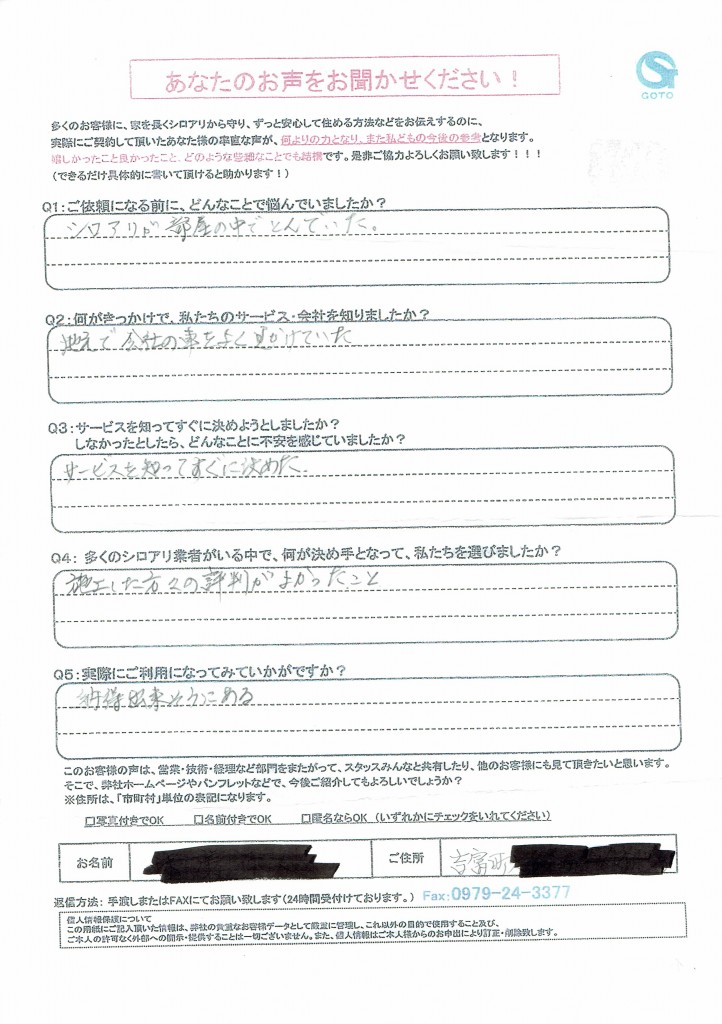 あなたのお声をお聞かせください！
GOTO
多くのお客様に、家を長くシロアリから守り、ずっと安心して住める方法などをお伝えするのに、
実際にご契約して頂いたあなた様の率直な声が、何よりの力となり、また私どもの今後の参考となります。
嬉しかったこと良かったこと、どのような些細なことでも結構です。是非ご協力よろしくお願い致します！！！
（できるだけ具体的に書いて頂けると助かります！）
Q1：ご依頼になる前に、どんなことで悩んでいましたか？
シロアリが部屋の中でとんでいた。
Q2：何がきっかけで、私たちのサービス・会社を知りましたか？
地元で会社の車をよく見かけていた
Q3：サービスを知ってすぐに決めようとしましたか？
しなかったとしたら、どんなことに不安を感じていましたか？
サービスを知ってすぐに決めた
Q4： 多くのシロアリ業者がいる中で、何が決め手となって、私たちを選びましたか？
施工した方々の評判がよかったこと
Q5：実際にご利用になってみていかがですか？
納得出来そうである
このお客様の声は、営業・技術・経理など部門をまたがって、スタッスみんなと共有したり、他のお客様にも見て頂きたいと思います。
そこで、弊社ホームページやパンフレットなどで、今後ご紹介してもよろしいでしょうか？
※住所は、「市町村」単位の表記になります。
□写真付きでOK □名前付きでOK □匿名ならOK （いずれかにチェックをいれてください）
お名前 ご住所 吉富町
返信方法： 手渡しまたはFAXにてお願い致します（24時間受付けております。） Fax:0979-24-3377
個人情報保護について
この用紙にご記入頂いた情報は、弊社の貴重なお客様データとして厳重に管理し、これ以外の目的で使用すること及び、
ご本人の許可なく外部への開示・提供することは一切ございません。また、個人情報はご本人様からのお申出により訂正・削除致します。